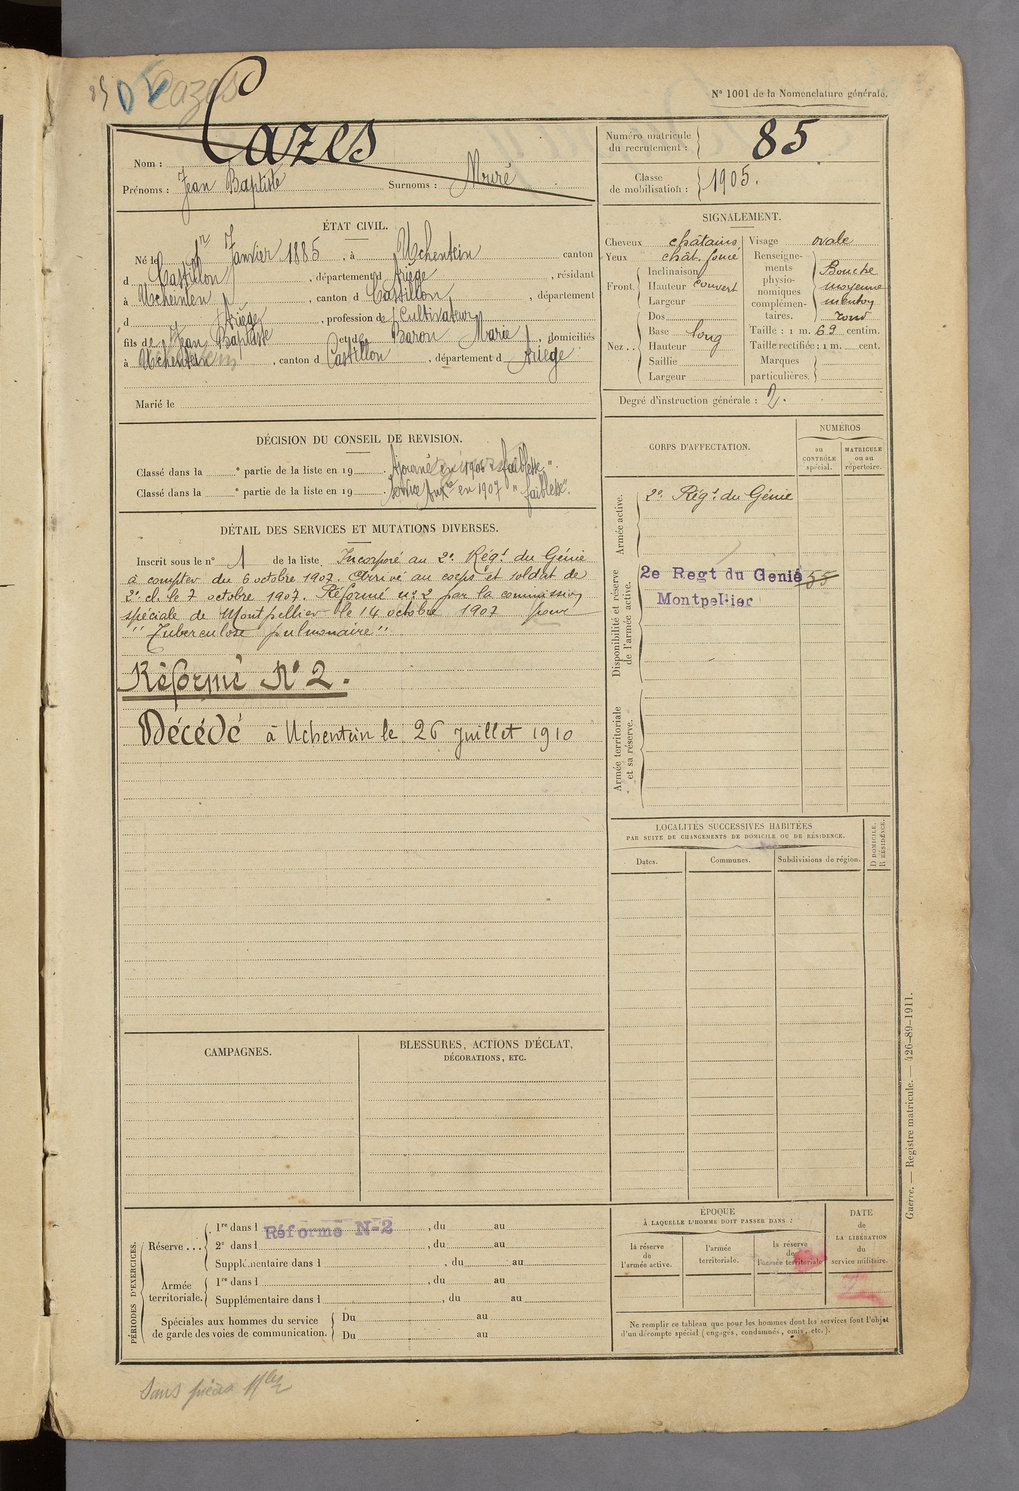 Cazes
N° 1001 de la Nomenclature générale.
Cazes
Nom :
Prénoms : Jean Baptiste Surnoms : Mouré
Numéro matricule du recrutement : 85
Classe de mobilisation : 1905.
ÉTAT CIVIL.
Né le Janvier 1885, à Uchentein canton
d Castillon, département d Ariège, résidant
à Uchentein, canton d Castillon, département
d Ariège, profession de Cultivateur
fils de Jean Baptiste et de Baron Marie, domiciliés
à Uchentein, canton d Castillon, département d Ariège
Marié le
SIGNALEMENT.
Cheveux châtains Visage ovale
Yeux chât. foncé
Front. Inclinaison
Hauteur couvert
Largeur
Nez.. Dos
Base long
Hauteur
Saillie
Largeur
Renseignements physionomiques complémentaires. Bouche moyenne menton rond
Taille : 1 m. 69 centim.
Taille rectifiée : 1 m. cent.
Marques particulières.
Degré d'instruction générale : 2.
DÉCISION DU CONSEIL DE REVISION.
Classé dans la e partie de la liste en 19 . Ajourné en 1906 "faiblesse".
Classé dans la e partie de la liste en 19 . Service Auxre en 1907 "faiblesse".
DÉTAIL DES SERVICES ET MUTATIONS DIVERSES.
Inscrit sous le n° 1 de la liste Incorporé au 2e Régt du Génie
à compter du 6 octobre 1907. Arrivé au corps et soldat de
2e cl. le 7 octobre 1907. Réformé n° 2 par la commission
spéciale de Montpellier le 14 octobre 1907 pour
"Tuberculose pulmonaire"
Réformé N° 2.
Décédé à Uchentein le 26 Juillet 1910
CORPS D'AFFECTATION.
NUMÉROS
au CONTRÔLE spécial.
MATRICULE ou au répertoire.
Armée active.
2e Régt du Génie
Disponibilité et réserve de l'armée active.
2e Regt du Genie 55
Montpellier
Armée territoriale et sa réserve.
LOCALITÉS SUCCESSIVES HABITÉES
PAR SUITE DE CHANGEMENTS DE DOMICILE OU DE RÉSIDENCE.
Dates.
Communes.
Subdivisions de région.
D DOMICILE.
R RÉSIDENCE.
CAMPAGNES.
BLESSURES, ACTIONS D'ÉCLAT,
DÉCORATIONS, ETC.
PÉRIODES D'EXERCICES.
Réserve... 1re dans l Réformé N-2, du au
2e dans l, du au
Supplémentaire dans l, du au
Armée territoriale. 1re dans l, du au
Supplémentaire dans l, du au
Spéciales aux hommes du service
de garde des voies de communication.
Du au
Du au
ÉPOQUE
À LAQUELLE L'HOMME DOIT PASSER DANS :
la réserve de l'armée active.
l'armée territoriale.
la réserve de l'armée territoriale
DATE
de
LA LIBÉRATION
du
service militaire.
Ne remplir ce tableau que pour les hommes dont les services font l'objet
d'un décompte spécial (engagés, condamnés, omis, etc.).
Guerre. — Registre matricule. — 426-89-1911.
Sans pièces